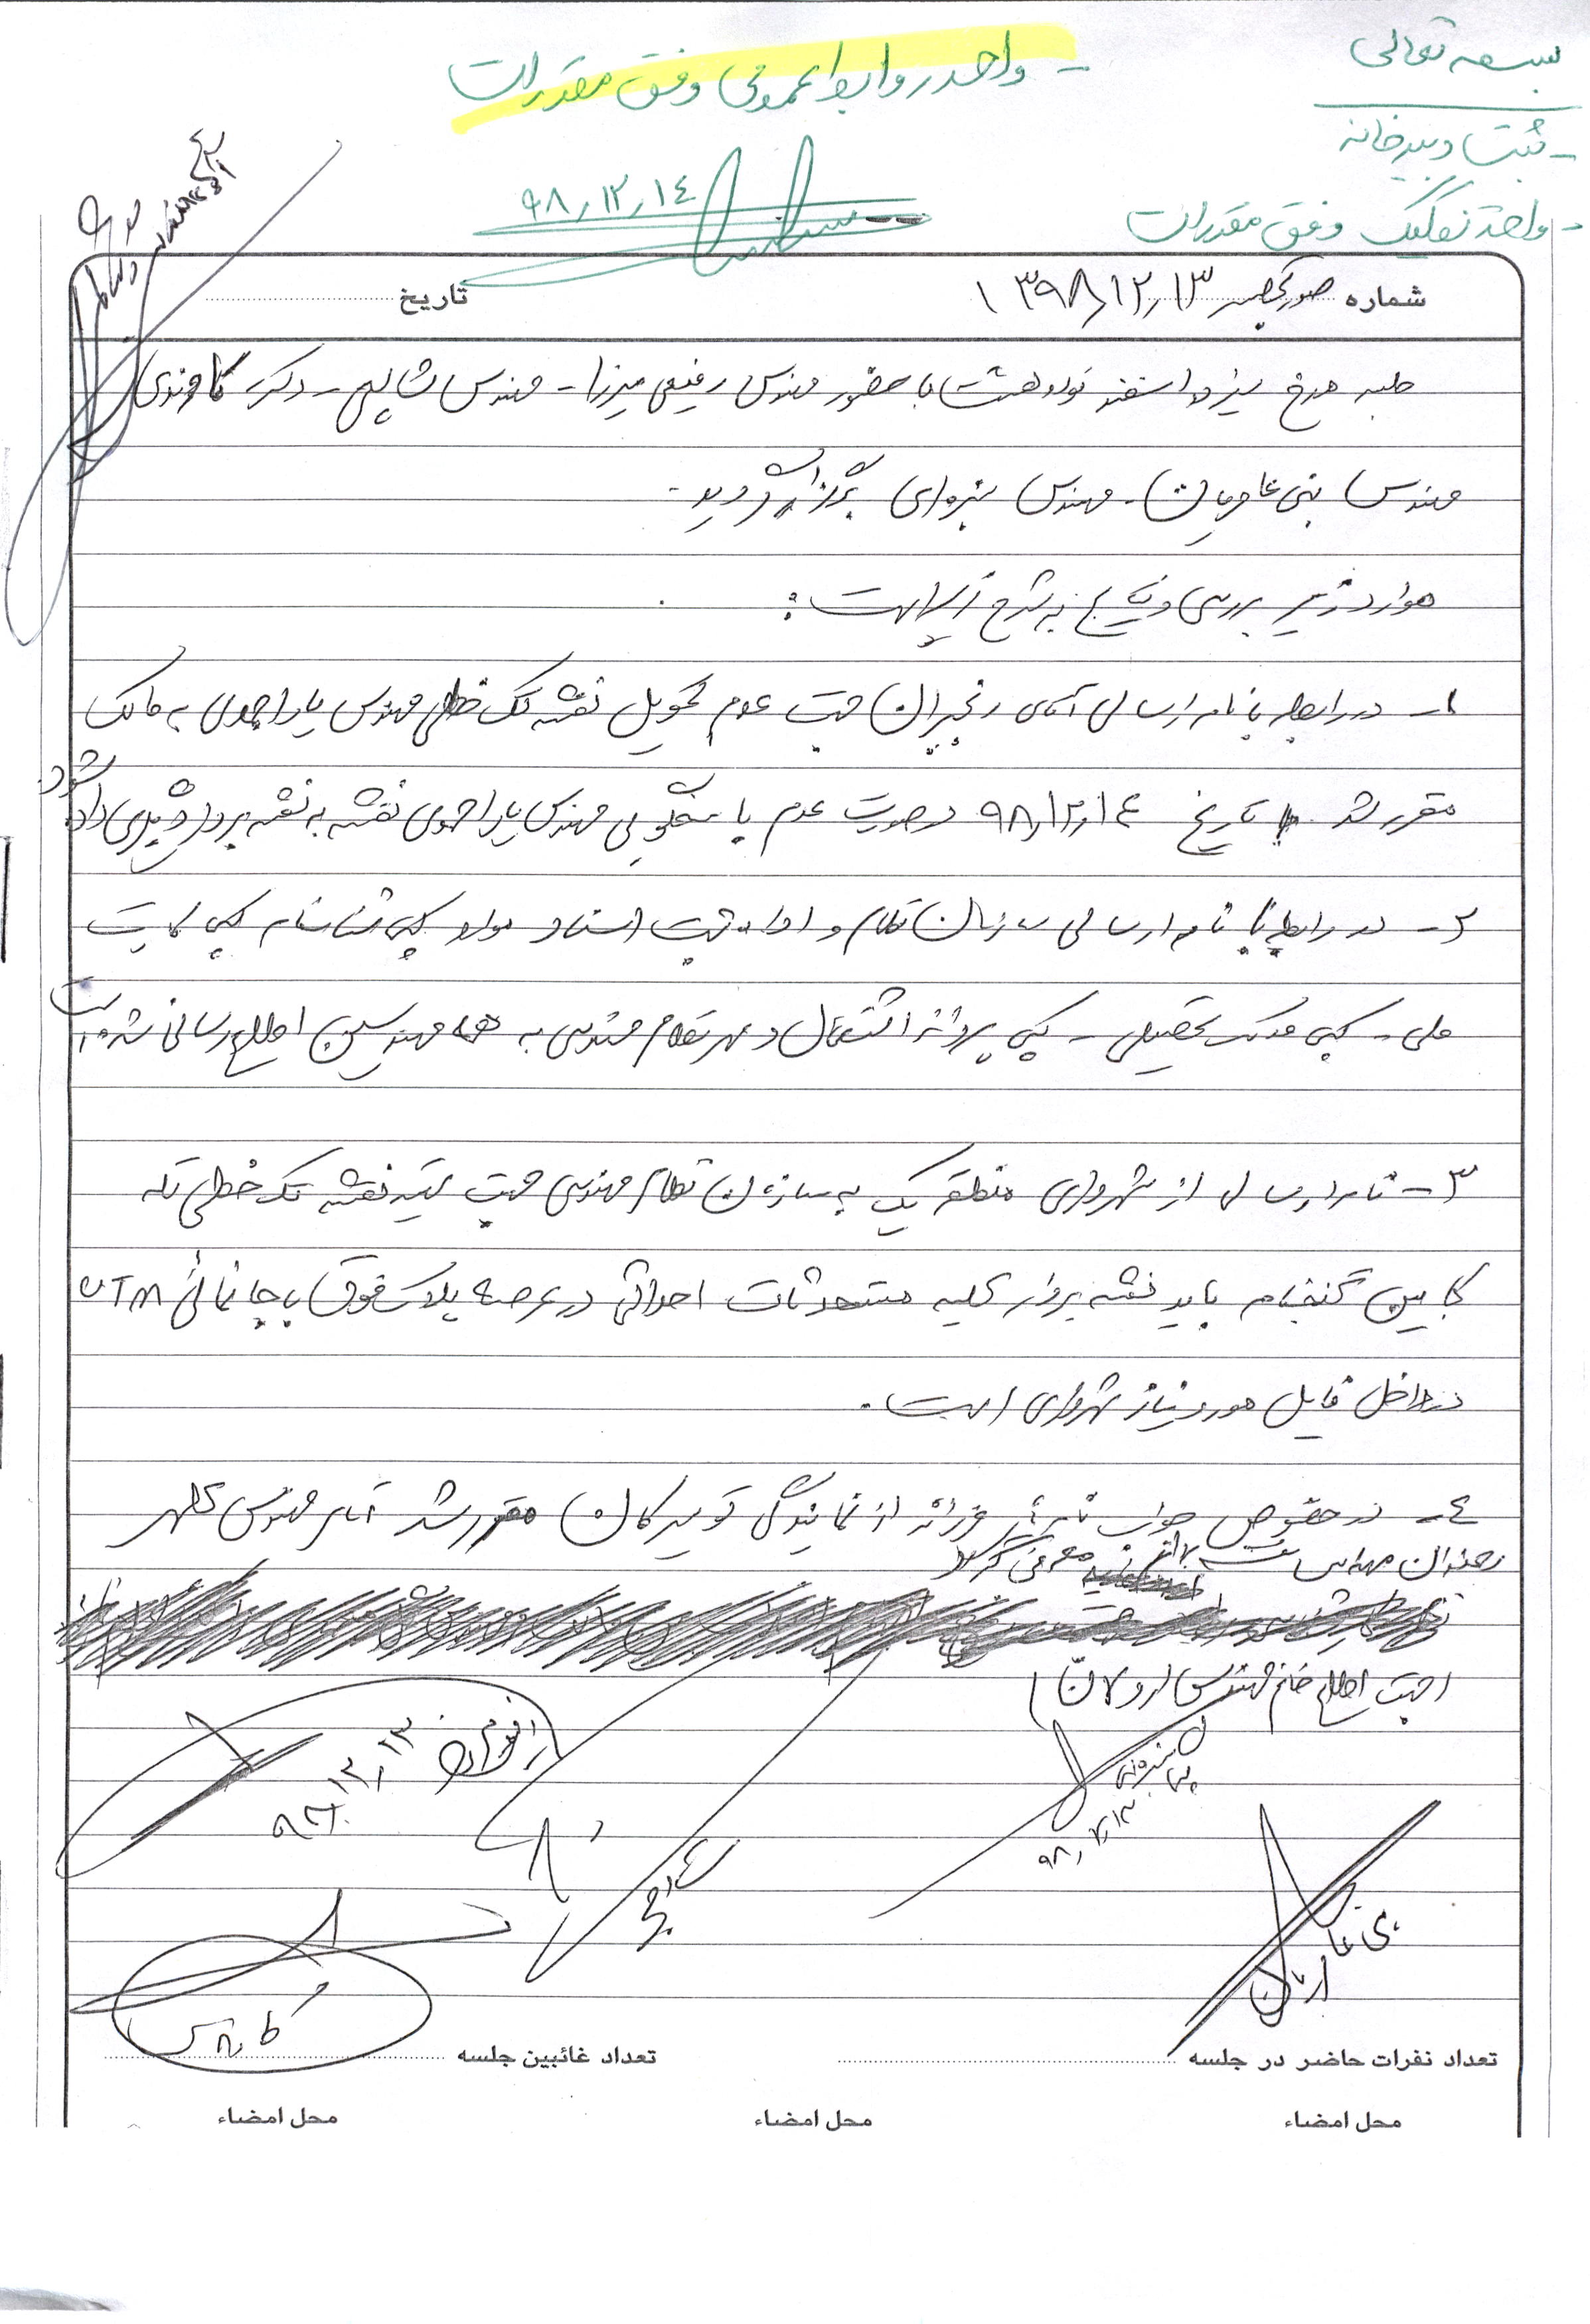 بسمه تعالی
- ثبت دبیرخانه
- واحد تفکیک وفق مقررات
- واحد روابط عمومی وفق مقررات
۹۸/۱۲/۱٤
شماره صورتجلسه ۱۳۹۸/۱۲/۱۳
تاریخ
جلسه مورخ سیزده اسفند نود و هشت با حضور مهندس رفیعی میرزا - مهندس - دکتر
مهندس بنی عامریان - مهندس سبزواری برگزار گردید -
موارد زیر بررسی و نتایج به شرح زیر است :
۱- در رابطه با نامه ارسالی آقای رنجبران جهت عدم تحویل نقشه تک خطی مهندس یاراحمدی به مالک
مقرر شد تاریخ ۹۸/۱۲/۱٤ درصورت عدم پاسخگویی مهندس یاراحمدی نقشه به نقشه بردار دیگری داده شود.
۲- در رابطه با نامه ارسالی سازمان نظام و اداره ثبت اسناد موارد کپی شناسنامه کپی کارت
ملی - کپی مدرک تحصیلی - کپی پروانه اشتغال و مهر نظام مهندسی به همه مهندسین اطلاع رسانی شده است
۳- نامه ارسالی از شهرداری منطقه یک به سازمان نظام مهندسی جهت تهیه نقشه تک خطی تله
کابین گنجنامه باید نقشه بردار کلیه مستحدثات احداثی در عرصه پلاک فوق با جانمائی UTM
در داخل فایل مورد نیاز شهرداری است .
٤- در خصوص جواب نامه از نمایندگی تویسرکان مقرر شد آقای مهندس
بعنوان معرفی گردد
(جهت اطلاع خانم مهندس اردلان)
۹۸/۱۲/۱۳
۹۸/۱۲/۱۳
بنی عامریان
تعداد نفرات حاضر در جلسه
تعداد غائبین جلسه
محل امضاء
محل امضاء
محل امضاء